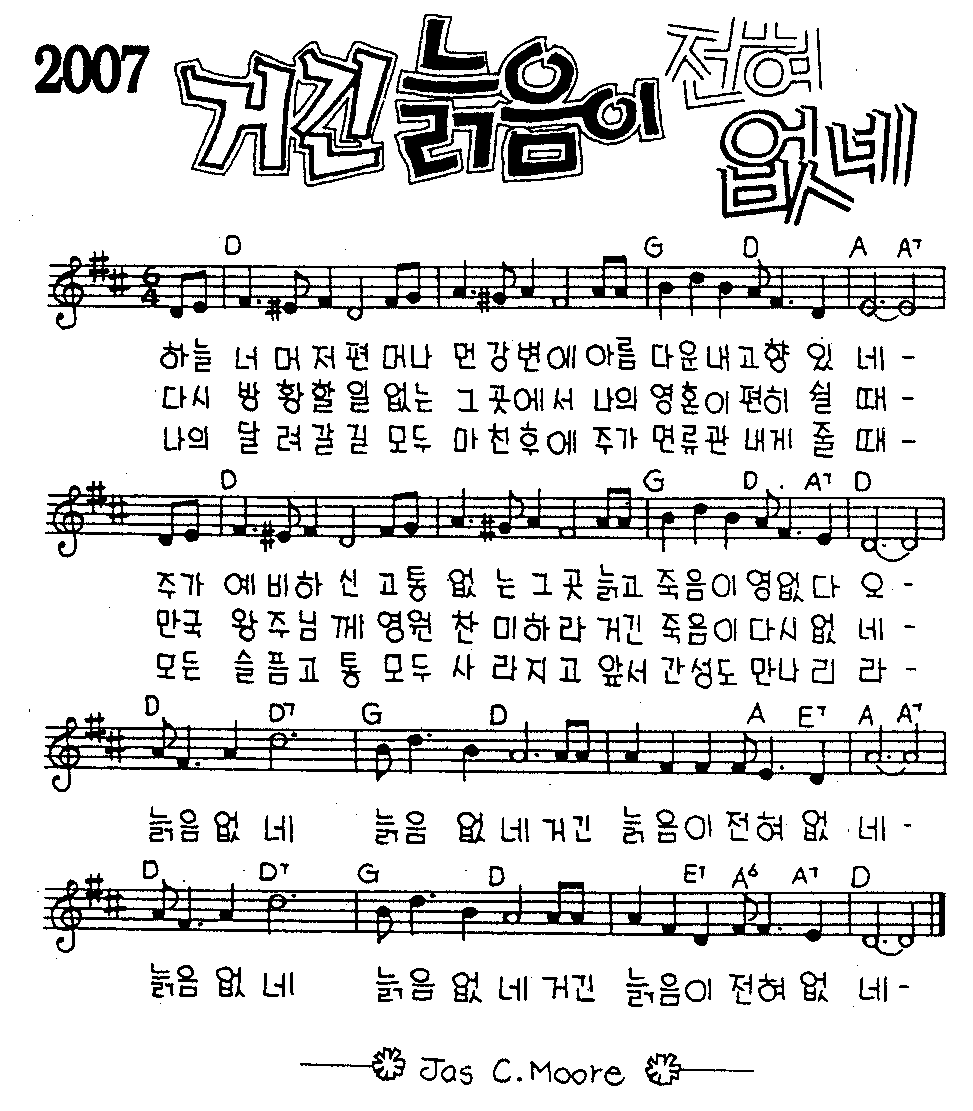 2007 거긴 늙음이 전혀
없네
D G D A A7
6
4
하늘 너 머 저 편 머나 먼 강변에 아름 다운내고향 있 네 -
다시 방 황할일 없는 그 곳에서 나의 영혼이 편히 쉴 때 -
나의 달 려갈길 모두 마 친후에 주가 면류관 내게 줄 때 -
D G D A7 D
주가 예 비하 신 고통 없 는 그 곳 늙고 죽음이 영없다 오 -
만국 왕 주님께 영원 찬 미하라 거긴 죽음이다시 없 네 -
모든 슬픔고 통 모두 사 라지고 앞서 간성도 만나 리 라 -
D D7 G D A E7 A A7
늙음 없 네 늙음 없 네 거긴 늙음이 전혀 없 네 -
D D7 G D E7 A6 A7 D
늙음 없 네 늙음 없 네 거긴 늙음이 전혀 없 네 -
Jas C. Moore